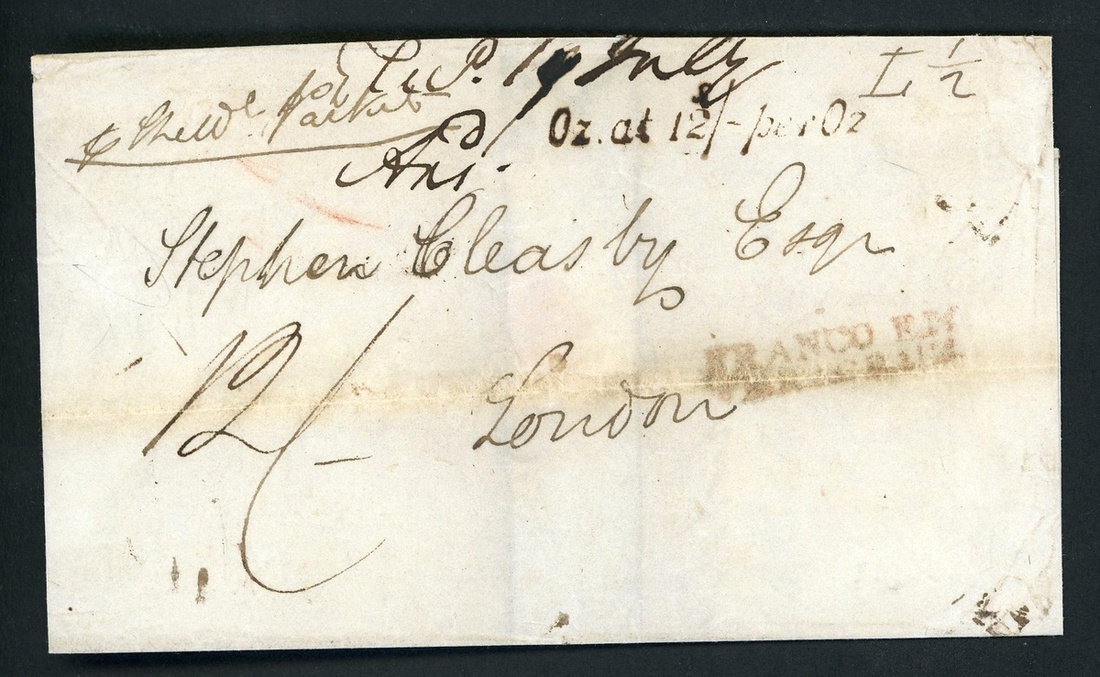 19 July
L ½
p the Wd. Packet
Oz. at 12/- per Oz
Ansd.
Stephen Cleasby Esqr
FRANCO EM
12/-
London